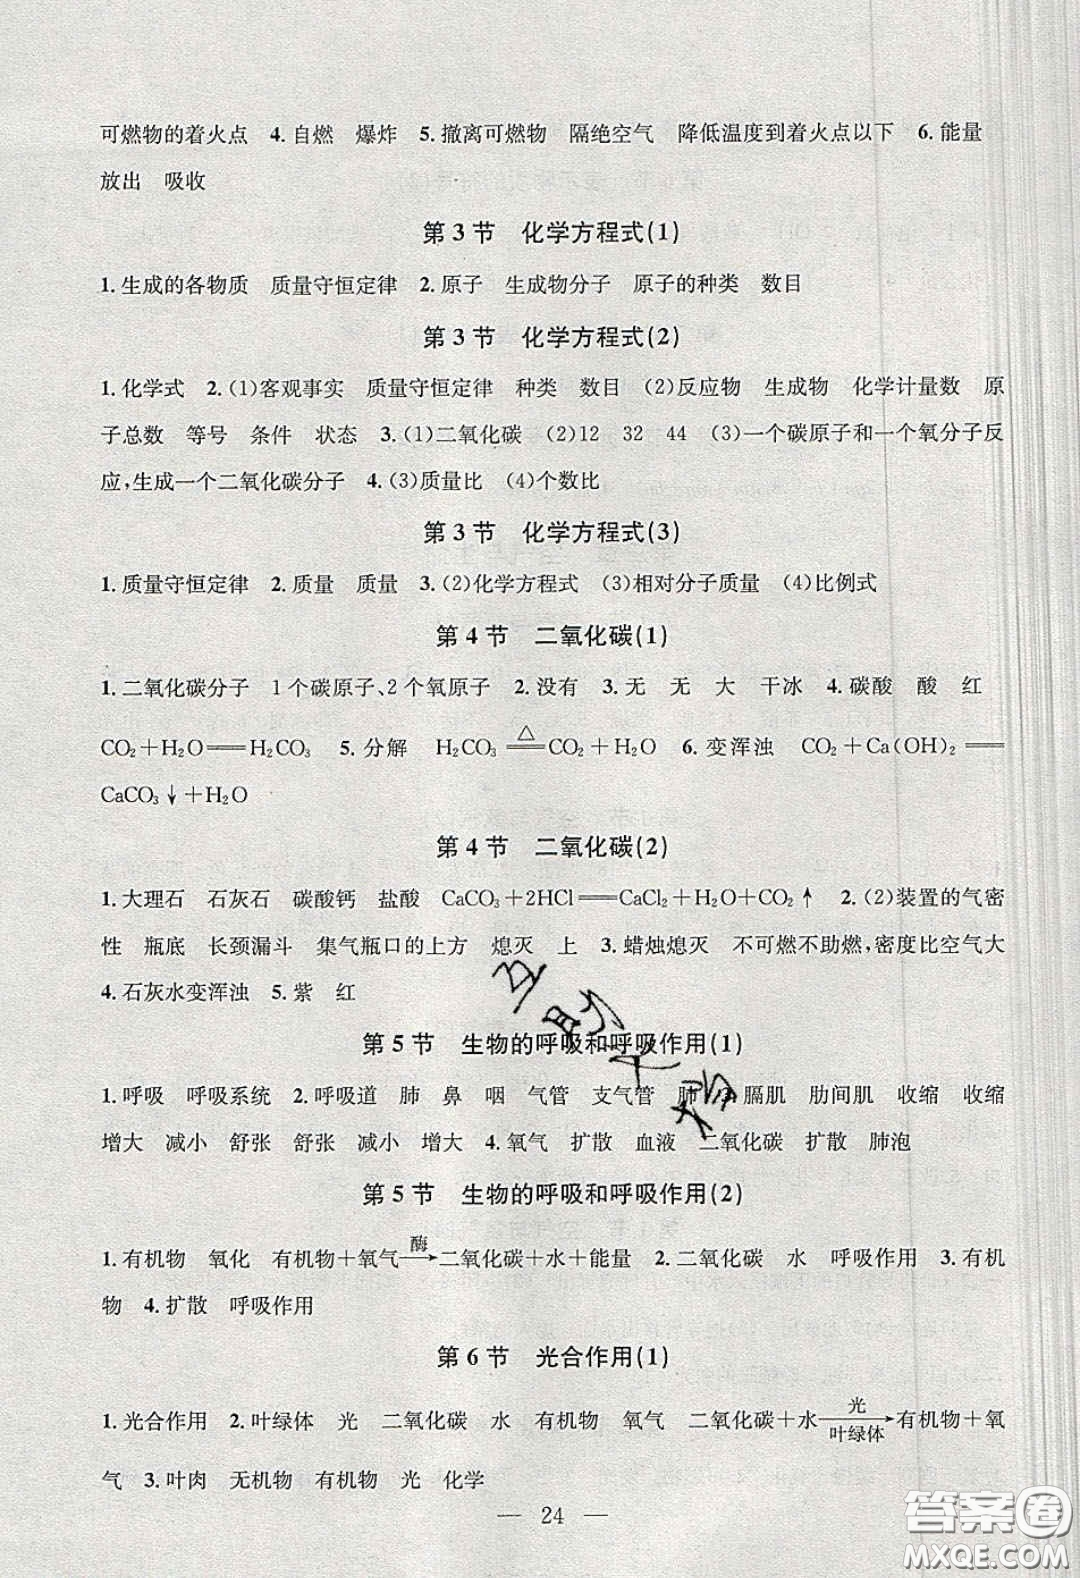 可燃物的着火点　4. 自燃　爆炸　5. 撤离可燃物　隔绝空气　降低温度到着火点以下　6. 能量
放出　吸收
第 3 节　化学方程式(1)
1. 生成的各物质　质量守恒定律　2. 原子　生成物分子　原子的种类　数目
第 3 节　化学方程式(2)
1. 化学式　2. (1)客观事实　质量守恒定律　种类　数目　(2)反应物　生成物　化学计量数　原
子总数　等号　条件　状态　3. (1)二氧化碳　(2)12　32　44　(3)一个碳原子和一个氧分子反
应,生成一个二氧化碳分子　4. (3)质量比　(4)个数比
第 3 节　化学方程式(3)
1. 质量守恒定律　2. 质量　质量　3. (2)化学方程式　(3)相对分子质量　(4)比例式
第 4 节　二氧化碳(1)
1. 二氧化碳分子　1 个碳原子、2 个氧原子　2. 没有　3. 无　无　大　干冰　4. 碳酸　酸　红
CO₂＋H₂O══H₂CO₃　5. 分解　H₂CO₃ ══△ CO₂＋H₂O　6. 变浑浊　CO₂＋Ca(OH)₂══
CaCO₃↓＋H₂O
第 4 节　二氧化碳(2)
1. 大理石　石灰石　碳酸钙　盐酸　CaCO₃＋2HCl══CaCl₂＋H₂O＋CO₂↑　2. (2)装置的气密
性　瓶底　长颈漏斗　集气瓶口的上方　熄灭　上　3. 蜡烛熄灭　不可燃不助燃,密度比空气大
4. 石灰水变浑浊　5. 紫　红
第 5 节　生物的呼吸和呼吸作用(1)
1. 呼吸　呼吸系统　2. 呼吸道　肺　鼻　咽　气管　支气管　肺　膈肌　肋间肌　收缩　收缩
增大　减小　舒张　舒张　减小　增大　4. 氧气　扩散　血液　二氧化碳　扩散　肺泡
第 5 节　生物的呼吸和呼吸作用(2)
1. 有机物　氧化　有机物＋氧气 酶→ 二氧化碳＋水＋能量　2. 二氧化碳　水　呼吸作用　3. 有机
物　4. 扩散　呼吸作用
第 6 节　光合作用(1)
1. 光合作用　2. 叶绿体　光　二氧化碳　水　有机物　氧气　二氧化碳＋水 光→叶绿体 有机物＋氧
气　3. 叶肉　无机物　有机物　光　化学
— 24 —
答案圈
MXQE.COM